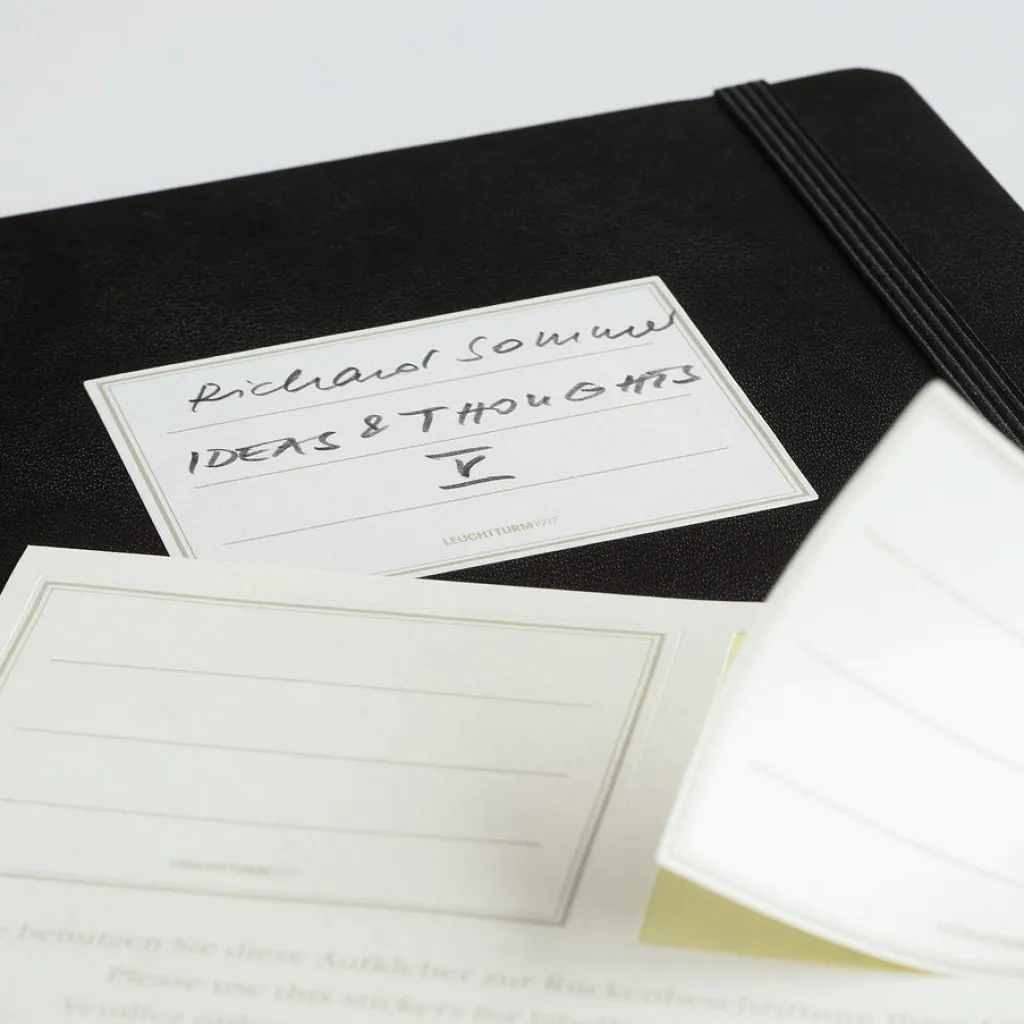 Richard Sommer
IDEAS & THOUGHTS
V
LEUCHTTURM1917
LEUCHTTURM
benutzen Sie diese Aufkleber zur Rückenbeschriftung
Please use this stickers for